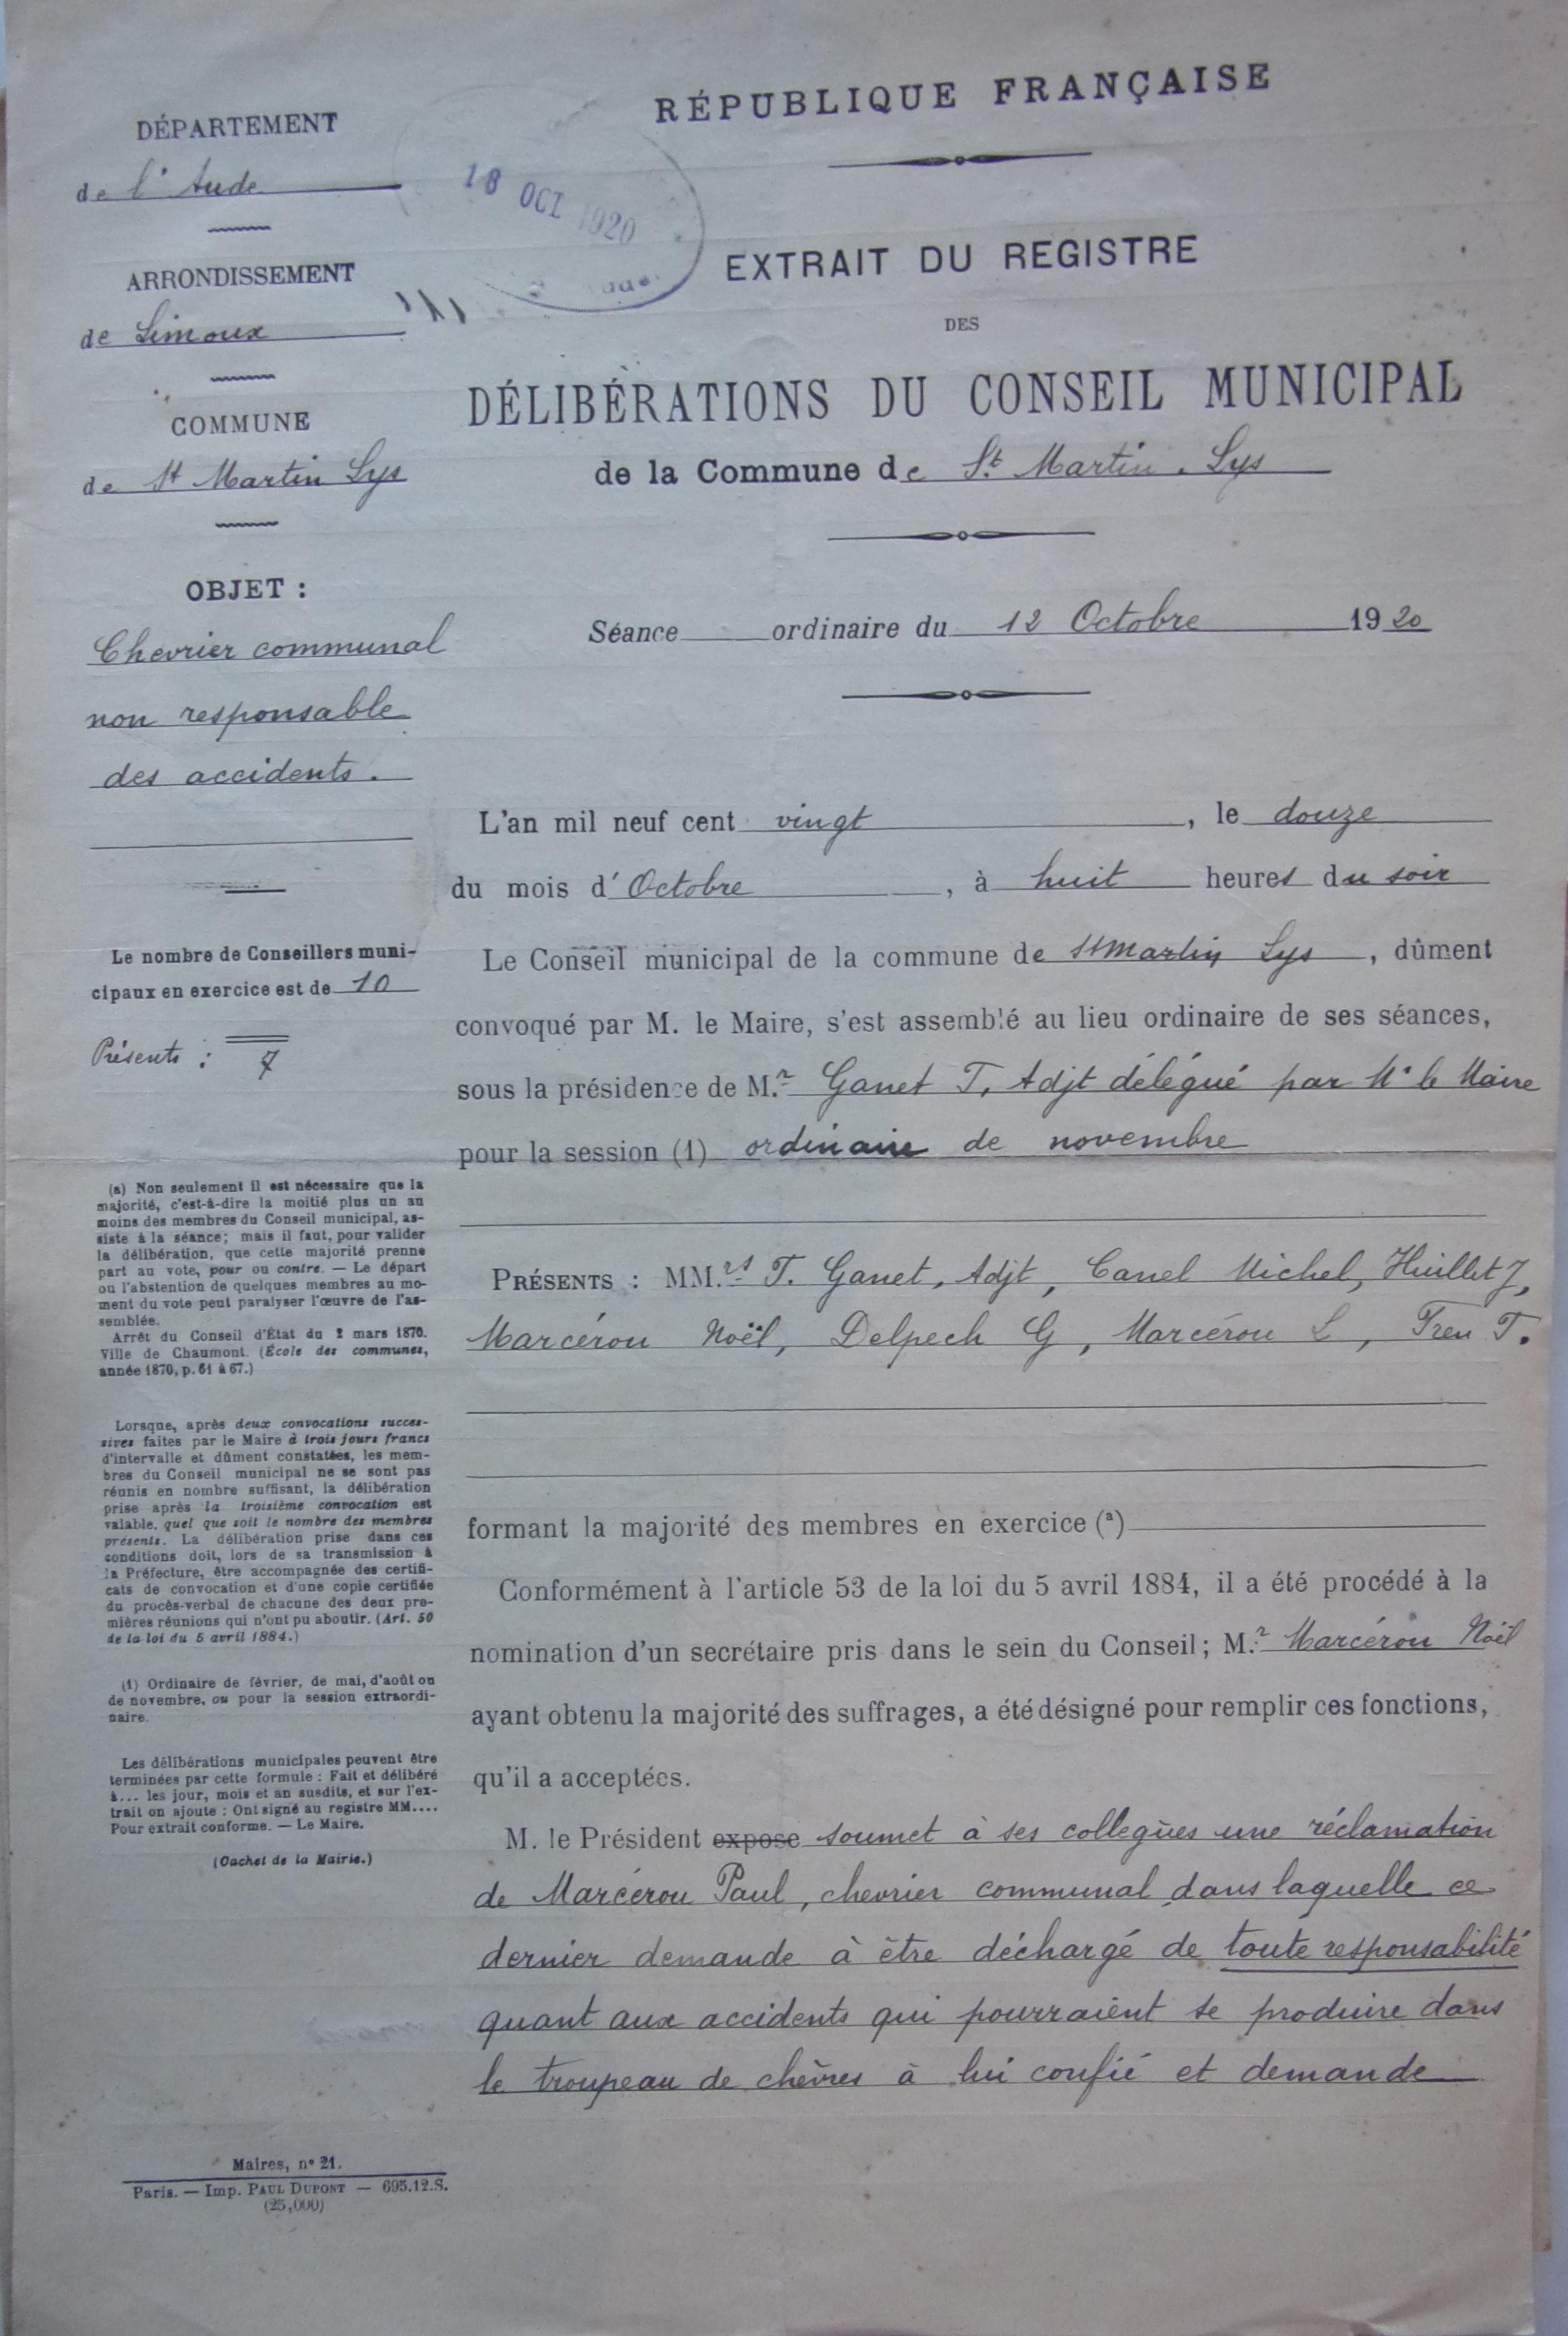 RÉPUBLIQUE FRANÇAISE
DÉPARTEMENT
de l'Aude
18 OCT 1920
ARRONDISSEMENT
de Limoux
COMMUNE
de St Martin Lys
EXTRAIT DU REGISTRE
DES
DÉLIBÉRATIONS DU CONSEIL MUNICIPAL
de la Commune de St Martin. Lys
OBJET :
Chevrier communal
non responsable
des accidents.
Séance ordinaire du 12 Octobre 1920
Le nombre de Conseillers muni-
cipaux en exercice est de 10
Présents : 7
L'an mil neuf cent vingt, le douze
du mois d'Octobre, à huit heures du soir
Le Conseil municipal de la commune de St Martin Lys, dûment
convoqué par M. le Maire, s'est assemblé au lieu ordinaire de ses séances,
sous la présidence de M.r Ganet T. Adjt délégué par Mr le Maire
pour la session (1) ordinaire de novembre
PRÉSENTS : MM.rs T. Ganet, Adjt, Canel Michel, Huillet J,
Marcérou Noël, Delpech G, Marcérou L, Tren T.
formant la majorité des membres en exercice (a)
Conformément à l'article 53 de la loi du 5 avril 1884, il a été procédé à la
nomination d'un secrétaire pris dans le sein du Conseil; M.r Marcérou Noël
ayant obtenu la majorité des suffrages, a été désigné pour remplir ces fonctions,
qu'il a acceptées.
M. le Président expose soumet à ses collegùes une réclamation
de Marcérou Paul, chevrier communal dans laquelle ce
dernier demande à être déchargé de toute responsabilité
quant aux accidents qui pourraient se produire dans
le troupeau de chèvres à lui confié et demande
(a) Non seulement il est nécessaire que la
majorité, c'est-à-dire la moitié plus un au
moins des membres du Conseil municipal, as-
siste à la séance; mais il faut, pour valider
la délibération, que cette majorité prenne
part au vote, pour ou contre. — Le départ
ou l'abstention de quelques membres au mo-
ment du vote peut paralyser l'œuvre de l'as-
semblée.
Arrêt du Conseil d'État du 2 mars 1870.
Ville de Chaumont. (École des communes,
année 1870, p. 61 à 67.)
Lorsque, après deux convocations succes-
sives faites par le Maire à trois jours francs
d'intervalle et dûment constatées, les mem-
bres du Conseil municipal ne se sont pas
réunis en nombre suffisant, la délibération
prise après la troisième convocation est
valable, quel que soit le nombre des membres
présents. La délibération prise dans ces
conditions doit, lors de sa transmission à
la Préfecture, être accompagnée des certifi-
cats de convocation et d'une copie certifiée
du procès-verbal de chacune des deux pre-
mières réunions qui n'ont pu aboutir. (Art. 50
de la loi du 5 avril 1884.)
(1) Ordinaire de février, de mai, d'août ou
de novembre, ou pour la session extraordi-
naire.
Les délibérations municipales peuvent être
terminées par cette formule : Fait et délibéré
à... les jour, mois et an susdits, et sur l'ex-
trait on ajoute : Ont signé au registre MM....
Pour extrait conforme. — Le Maire.
(Cachet de la Mairie.)
Maires, n° 21.
Paris. — Imp. PAUL DUPONT — 695.12.S.
(25,000)